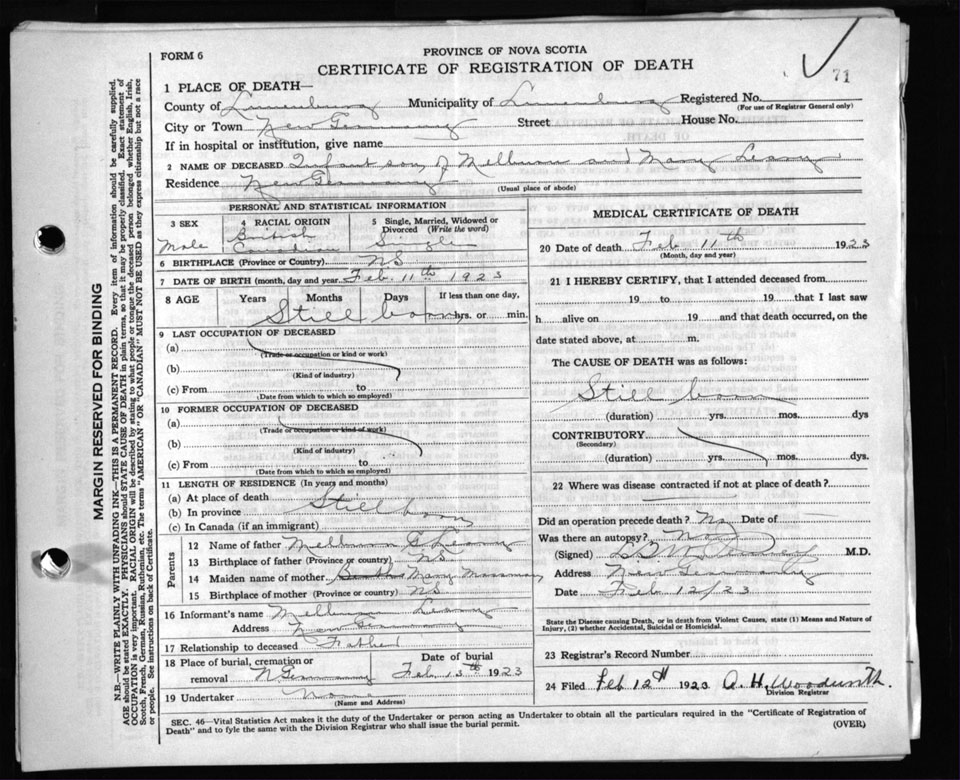 FORM 6
PROVINCE OF NOVA SCOTIA
CERTIFICATE OF REGISTRATION OF DEATH
71
1 PLACE OF DEATH—
County of Lunenburg Municipality of Lunenburg Registered No.
(For use of Registrar General only)
City or Town New Germany Street House No.
If in hospital or institution, give name
2 NAME OF DECEASED Infant son of Melburn and Mary Leary
Residence New Germany
(Usual place of abode)
PERSONAL AND STATISTICAL INFORMATION
3 SEX
Male
4 RACIAL ORIGIN
British
Canadian
5 Single, Married, Widowed or
Divorced (Write the word)
Single
6 BIRTHPLACE (Province or Country) NS
7 DATE OF BIRTH (month, day and year) Feb. 11th 1923
8 AGE Years Months Days If less than one day,
Still born hrs. or min.
9 LAST OCCUPATION OF DECEASED
(a)
(Trade or occupation or kind or work)
(b)
(Kind of industry)
(c) From to
(Date from which to which so employed)
10 FORMER OCCUPATION OF DECEASED
(a)
(Trade or occupation or kind of work)
(b)
(Kind of industry)
(c) From to
(Date from which to which so employed)
11 LENGTH OF RESIDENCE (In years and months)
(a) At place of death
(b) In province Still born
(c) In Canada (if an immigrant)
Parents
12 Name of father Melburn Leary
13 Birthplace of father (Province or country) NS
14 Maiden name of mother Mary Mossman
15 Birthplace of mother (Province or country) NS.
16 Informant's name Melburn Leary
Address New Germany
17 Relationship to deceased Father
18 Place of burial, cremation or
removal N Germany
Date of burial
Feb 13th 1923
19 Undertaker None
(Name and Address)
MEDICAL CERTIFICATE OF DEATH
20 Date of death Feb 11th 1923
(Month, day and year)
21 I HEREBY CERTIFY, that I attended deceased from
19 to 19 that I last saw
h alive on 19 and that death occurred, on the
date stated above, at m.
The CAUSE OF DEATH was as follows:
Still born
(duration) yrs. mos. dys
CONTRIBUTORY
(Secondary)
(duration) yrs. mos. dys.
22 Where was disease contracted if not at place of death?
Did an operation precede death? No Date of
Was there an autopsy? No
(Signed) M.D.
Address New Germany
Date Feb 12/23
State the Disease causing Death, or in death from Violent Causes, state (1) Means and Nature of
Injury, (2) whether Accidental, Suicidal or Homicidal.
23 Registrar's Record Number
24 Filed Feb 12th 1923 A. H. Woodworth.
Division Registrar
SEC. 46—Vital Statistics Act makes it the duty of the Undertaker or person acting as Undertaker to obtain all the particulars required in the "Certificate of Registration of
Death" and to fyle the same with the Division Registrar who shall issue the burial permit.
(OVER)
MARGIN RESERVED FOR BINDING
N.B.—WRITE PLAINLY WITH UNFADING INK—THIS IS A PERMANENT RECORD. Every item of information should be carefully supplied.
AGE should be stated EXACTLY. PHYSICIANS should STATE CAUSE OF DEATH in plain terms, so that it may be properly classified. Exact statement of
OCCUPATION is very important. RACIAL ORIGIN will be described by stating to what people or tongue the deceased person belonged whether English, Irish,
Scotch, French, German, Russian, Ruthenian, etc. The terms "AMERICAN" OR "CANADIAN" MUST NOT BE USED as they express citizenship but not a race
or people. See instructions on back of Certificate.